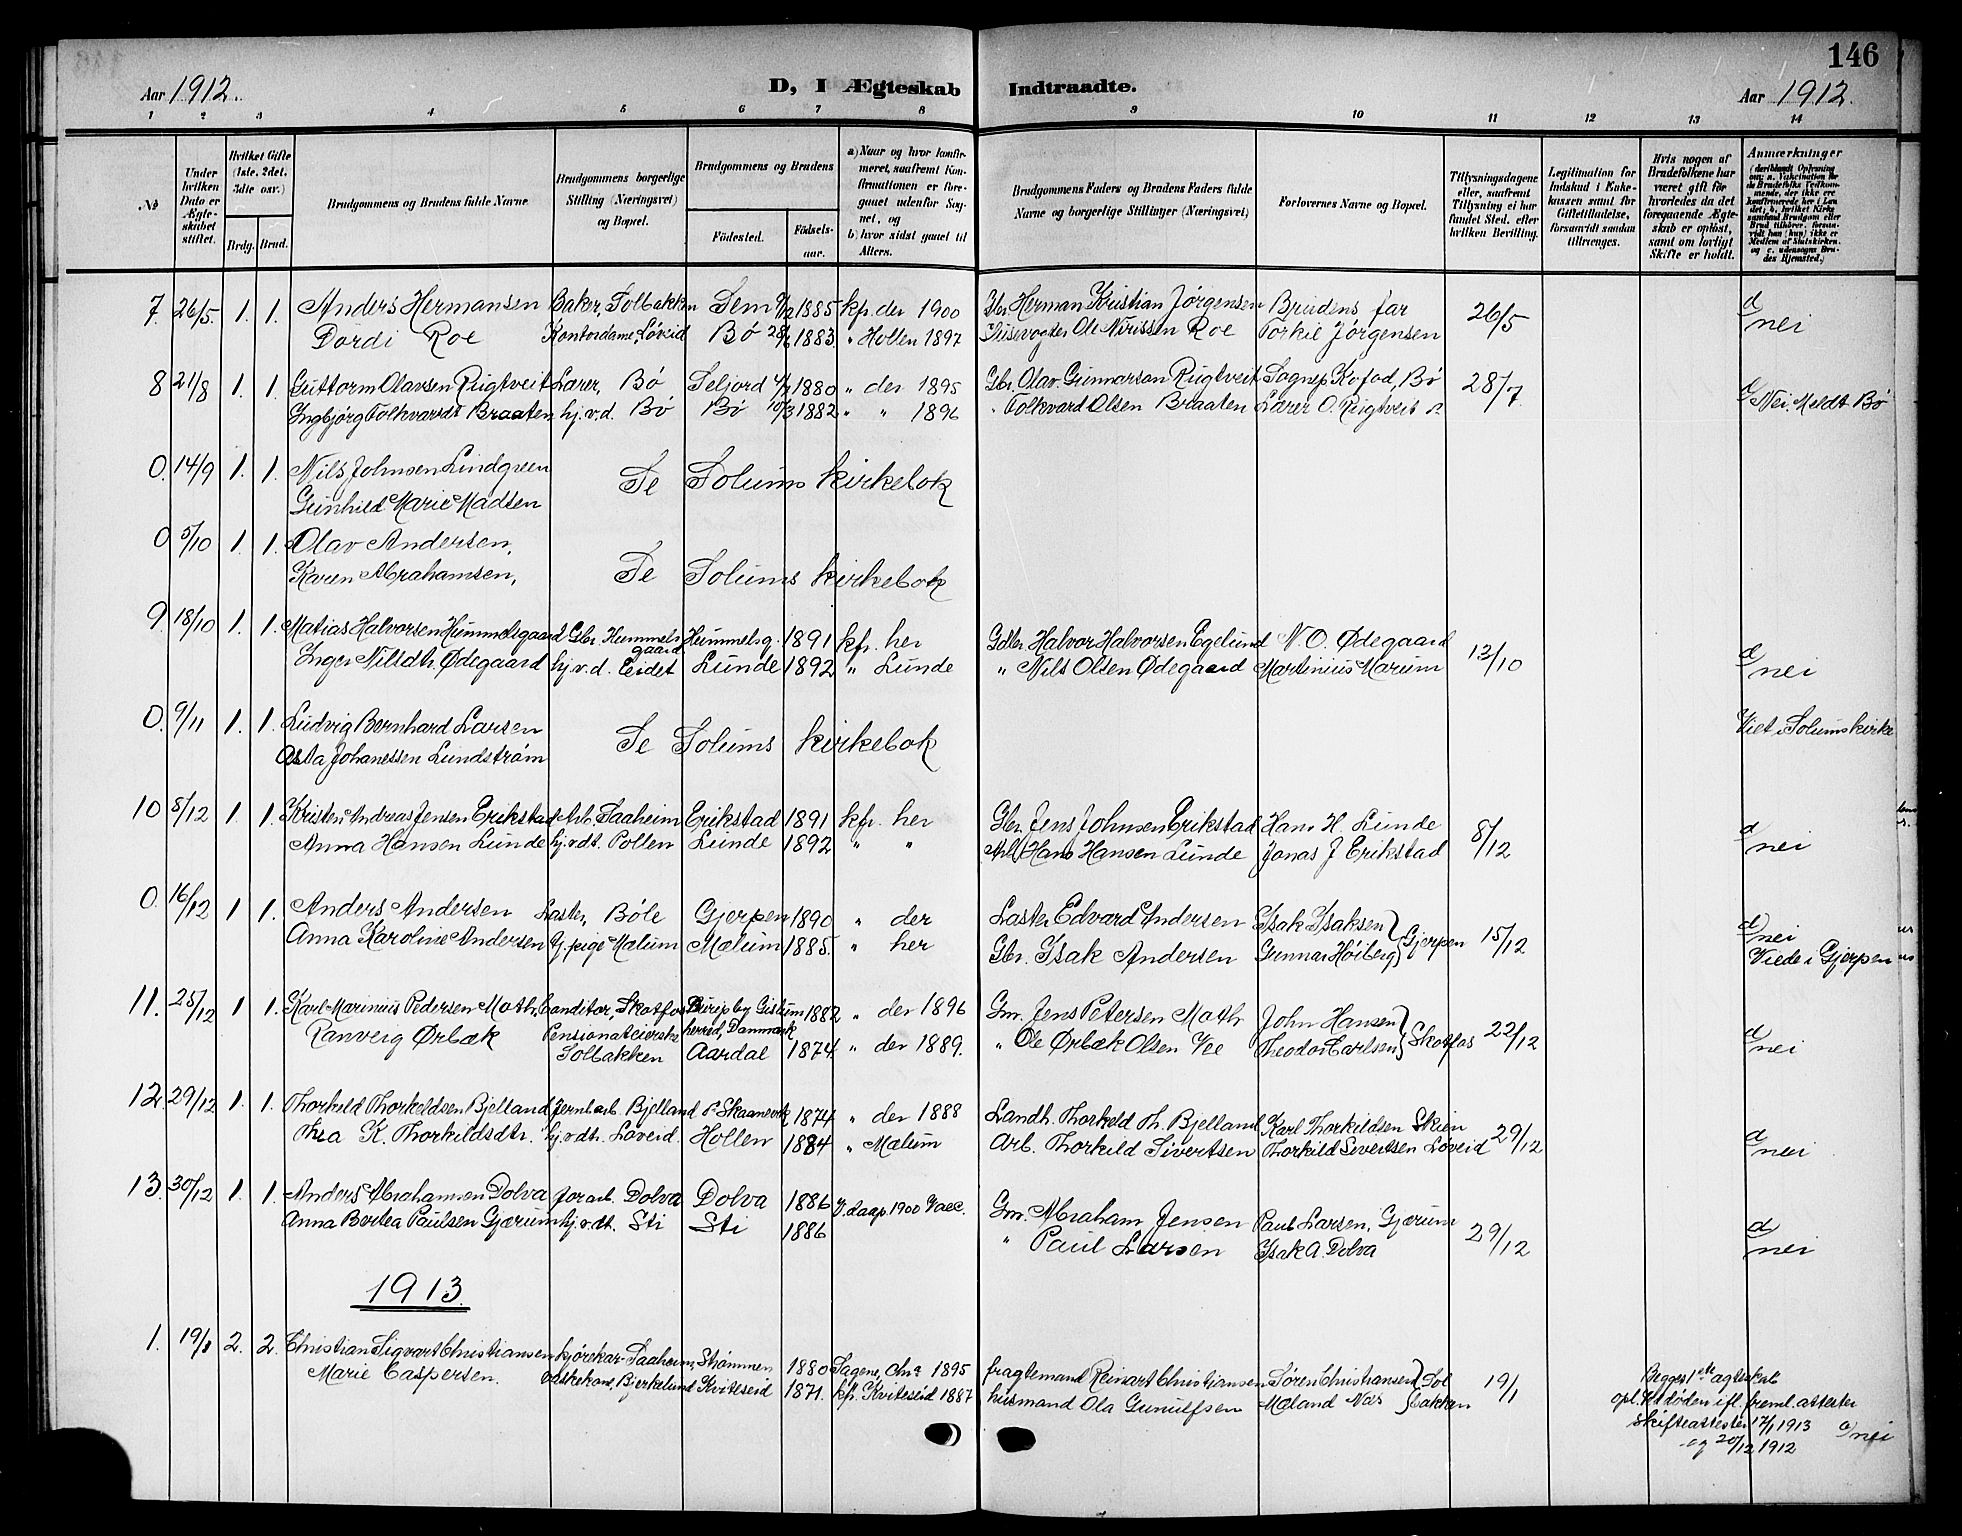 146
Aar 1912.
D, I Ægteskab Indtraadte.
Aar 1912.
1 2 3 4 5 6 7 8 9 10 11 12 13 14
No
Under hvilken Dato er Ægteskabet stiftet.
Hvilket Gifte (1ste, 2det, 3die osv.)
Brdg. Brud.
Brudgommens og Brudens fulde Navne
Brudgommens borgerlige Stilling (Næringsvei) og Bopæl.
Brudgommens og Brudens
Födested. Födselsaar.
a) Naar og hvor konfirmeret, saafremt Konfirmationen er foregaaet udenfor Sognet, og
b) hvor sidst gaaet til Alters.
Brudgommens Faders og Brudens Faders fulde Navne og borgerlige Stillinger (Næringsvei)
Forlovernes Navne og Bopæl.
Tillysningsdagene eller, saafremt Tillysning ei har fundet Sted, efter hvilken Bevilling.
Legitimation for Indskud i Enkekassen samt for Giftetilladelse, forsaavidt saadan tiltrænges.
Hvis nogen af Brudefolkene har været gift för hvorledes da det foregaaende Ægteskab er oplöst, samt om lovligt Skifte er holdt.
Anmærkninger
7. 26/5. 1. 1. Anders Hermansen Baker, Solbakken Sem 1885 kfr. der 1900 Gbr. Herman Kristian Jørgensen Brudens far 26/5 d/nei
Dordi Roe Kontordame, Løveid Bø 1883. " Hollen 1897 Ole Nirissen Roe Torkil Jørgensen
8 21/8 1. 1. Guttorm Olavsen Rugtveit Lærer, Bø Seljord 1880 " der 1895 Gbr. Olav Gunnarson Rugtveit Sognep. Kofod, Bø 28/7 Nei. Meldt Bø
Ingbjørg Folkvardsdt Braaten hj.v.d. Bø Bø 10/3 1882 " " 1896 " Folkvard Olsen Braaten Lærer O. Rugtveit
0. 14/9 1. 1. Nils Johnsen Lindgreen
Gunhild Marie Madsen
Se Solums kirkebok
0 5/10 1. 1. Olav Andersen,
Karen Abrahamsen,
Se Solums kirkebok
9. 18/10 1. 1. Matias Halvorsen Hummelsgaard Gbr. Hummelsgaard Hummelsg. 1891 kfr. her Gdbr. Halvor Halvorsen Egelund N. O. Ødegaard 13/10 d/nei
Inger Nilsdtr. Ødegaard hj.v.d. Eidet Lunde 1892 " Lunde " Nils Olsen Ødegaard Martinius Marum
0. 9/11 1. 1. Ludvig Bernhard Larsen
Asta Johanessen Lundstrøm
Se Solums kirkebok
Viet i Solums kirke
10 8/12 1. 1. Kristen Andreas Jensen Erikstad Arb. Taaheim Erikstad 1891 kfr. her Gbr. Jens Johnsen Erikstad Hans H. Lunde 8/12 d/nei
Anna Hansen Lunde hj.v.dt. Pollen Lunde 1892 " " Arb. Hans Hansen Lunde Jonas J Erikstad
0. 16/12 1 1. Anders Andersen Laster, Bøle Gjerpen 1890 " der Laster Edvard Andersen Isak Isaksen 15/12 d/nei
Anna Karoline Andersen Tj.pige Mælum Mælum 1885. " her Gbr. Isak Andersen Gunnar Høiberg } Gjerpen Viede i Gjerpen
11. 25/12 1 1. Karl Marinius Pedersen Math. Conditor, Skotfos by Gislum herred, Danmark 1882 " der 1896 Gm. Jens Petersen Math John Hansen 22/12 d/nei
Ranveig Ørbæk Solbakken Aardal 1874. " der 1889. " Ole Ørbæk Olsen Vee Theodor Carlsen } Skotfos
12. 29/12 1. 1. Thorkild Thorkeldsen Bjelland Jernb.arb. Bjelland Skaanevik 1874 " der 1888 Landh. Thorkeld Th. Bjelland Karl Thorkildsen Skien 29/12 d/nei
Thea K. Thorkildsdtr. hj.v.dtr. Løveid. Hollen 1884 " Mælum Arb. Thorkild Sivertsen Thorkild Sivertsen Løveid
13. 30/12 1. 1. Anders Abrahamsen Dolva Jorarb. Dolva Dolva 1886 Gm. Abraham Jensen Paul Larsen, Gjærum 29/12 d/nei
Anna Bertea Paulsen Gjærum hj.v.dt. Sti Sti 1886 " Paul Larsen Isak A. Dolva
1913.
1. 19/1 2. 2. Christian Sigvart Christiansen kjørekar Taaheim, Strømmen 1880 Sagene, Chra 1895 fragtemand Reinart Christiansen Søren Christiansen 19/1 Begges 1ste ægteskab
Marie Caspersen. vaskekone, Bjerkelund Kviteseid 1871. kfr. Kviteseid 1887 husmand Ola Gunulfsen Mæland Næs } Solbakken opl. ved døden ifl. freml. attester
skifteattester 17/1 1913
og 20/12 1912 d/nei